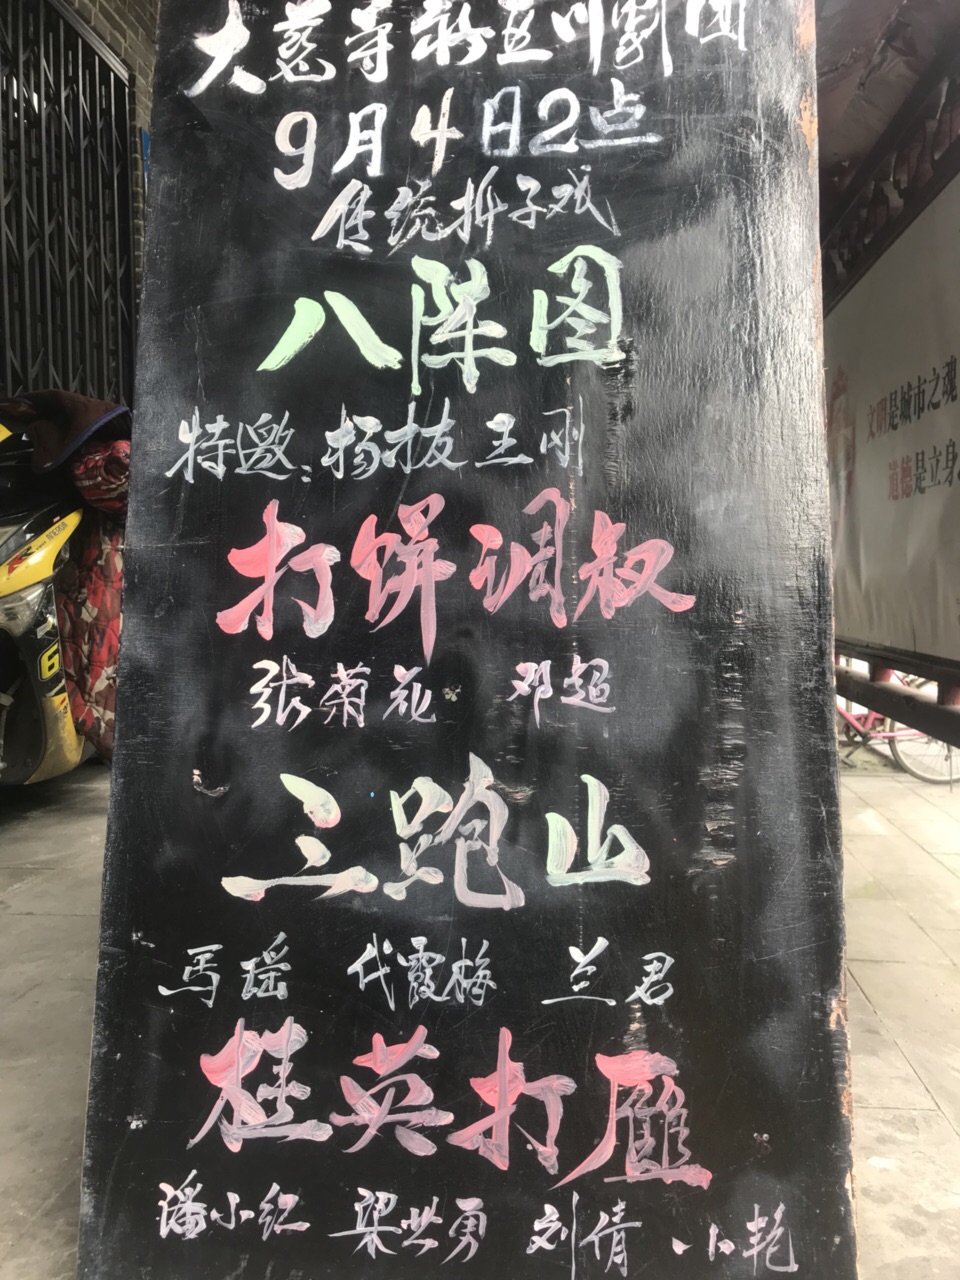 大慈寺新五川劇团
9月4日2点
传统折子戏
八陣图
特邀:杨拔 王刚
打饼调叔
张菊花 邓超
三跑山
馬瑶 代霞梅 兰君
桂英打雁
潘小红 梁世勇 刘倩 小艳
文明是城市之魂
道德是立身
6